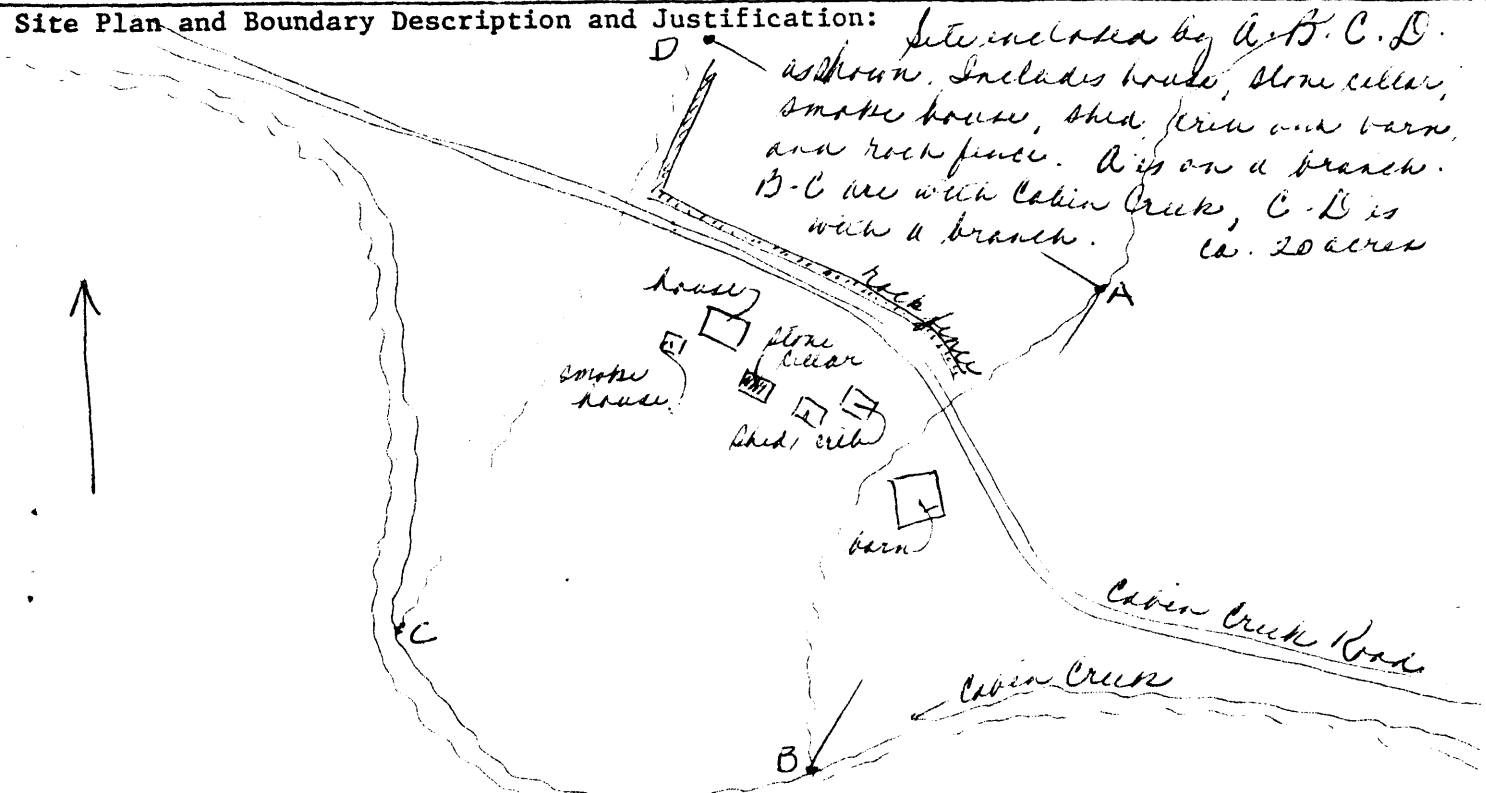 Site Plan and Boundary Description and Justification:
Site enclosed by A. B. C. D.
as shown. Includes house, stone cellar,
smoke house, shed, crib and barn,
and rock fence. A is on a branch.
B-C are with Cabin Creek, C-D is
with a branch. ca. 20 acres
D
A
rock fence
house
stone
cellar
smoke
house
shed
crib
barn
C
Cabin Creek Road
Cabin Creek
B